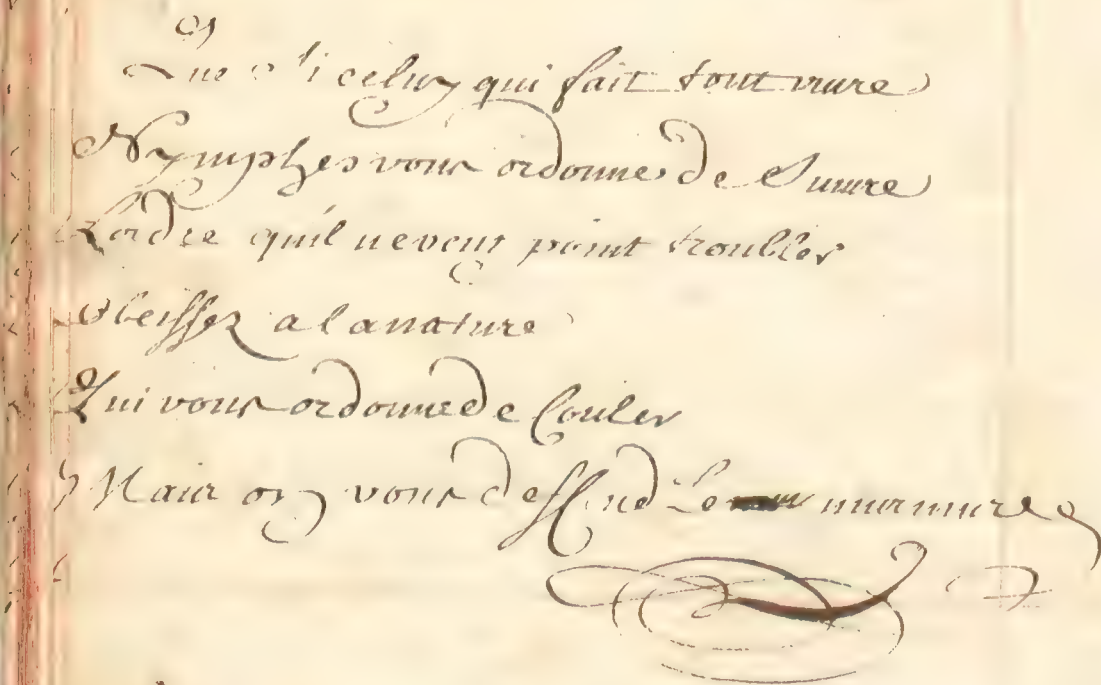 Que si celuy qui fait tout viure
Nymphes vous ordonne de Suiure
Lordre quil neveut point troubler
Obeissez a lanature
Qui vous ordonne de Couler
Mais on vous deffend Le murmure